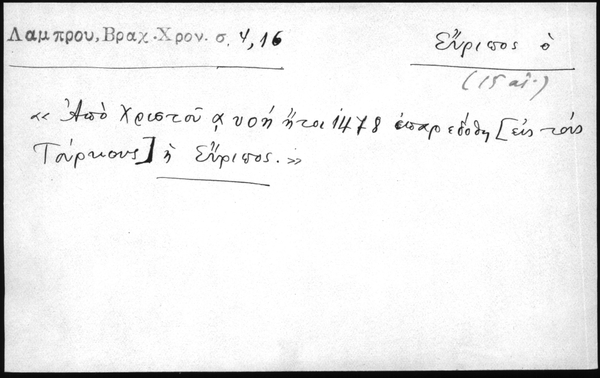 Λαμπρου, Βραχ. Χρον. σ. 4, 16
Εὔριπος ὁ
(15 αἰ.)
« Ἀπὸ Χριστοῦ α υοή ἤτοι 1478 ἐπαρεδόθη [εἰς τοὺς
Τούρκους] ἡ Εὔριπος. »